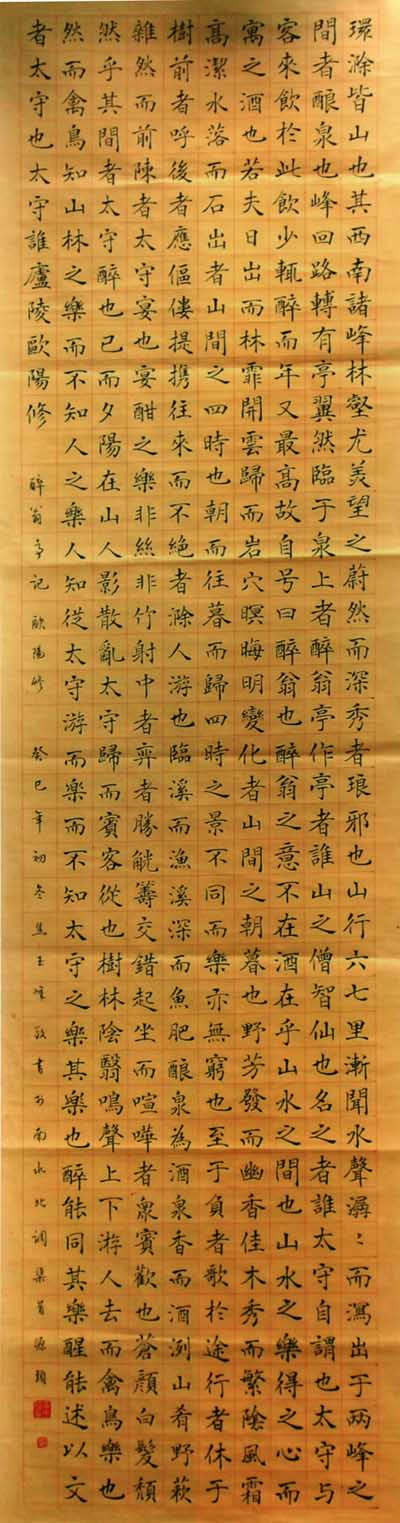 環滁皆山也其西南諸峰林壑尤美望之蔚然而深秀者琅邪也山行六七里漸聞水聲潺〻而瀉出于兩峰之
間者釀泉也峰回路轉有亭翼然臨于泉上者醉翁亭作亭者誰山之僧智仙也名之者誰太守自謂也太守与
客來飲於此飲少輒醉而年又最高故自号曰醉翁也醉翁之意不在酒在乎山水之間也山水之樂得之心而
寓之酒也若夫日出而林霏開雲歸而岩穴暝晦明變化者山間之朝暮也野芳發而幽香佳木秀而繁陰風霜
高潔水落而石出者山間之四時也朝而往暮而歸四時之景不同而樂亦無窮也至于負者歌於途行者休于
樹前者呼後者應傴僂提携往來而不絕者滁人游也臨溪而漁溪深而魚肥釀泉為酒泉香而酒洌山肴野蔌
雜然而前陳者太守宴也宴酣之樂非絲非竹射中者弈者勝觥籌交錯起坐而喧嘩者衆賓歡也蒼顏白髮頹
然乎其間者太守醉也已而夕陽在山人影散亂太守歸而賓客從也樹林陰翳鳴聲上下游人去而禽鳥樂也
然而禽鳥知山林之樂而不知人之樂人知從太守游而樂而不知太守之樂其樂也醉能同其樂醒能述以文
者太守也太守誰廬陵歐陽修 醉翁亭记 歐陽修 癸巳年初冬焦玉敬書於南水北调渠首源頭